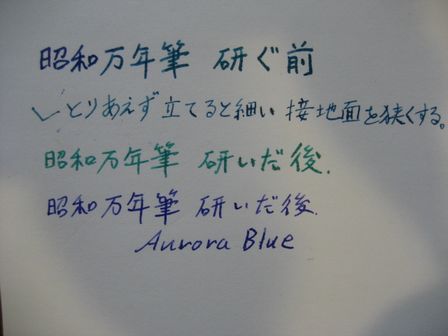 昭和万年筆 研ぐ前
とりあえず立てると細い 接地面を狭くする。
昭和万年筆 研いだ後.
昭和万年筆 研いだ後.
Aurora Blue